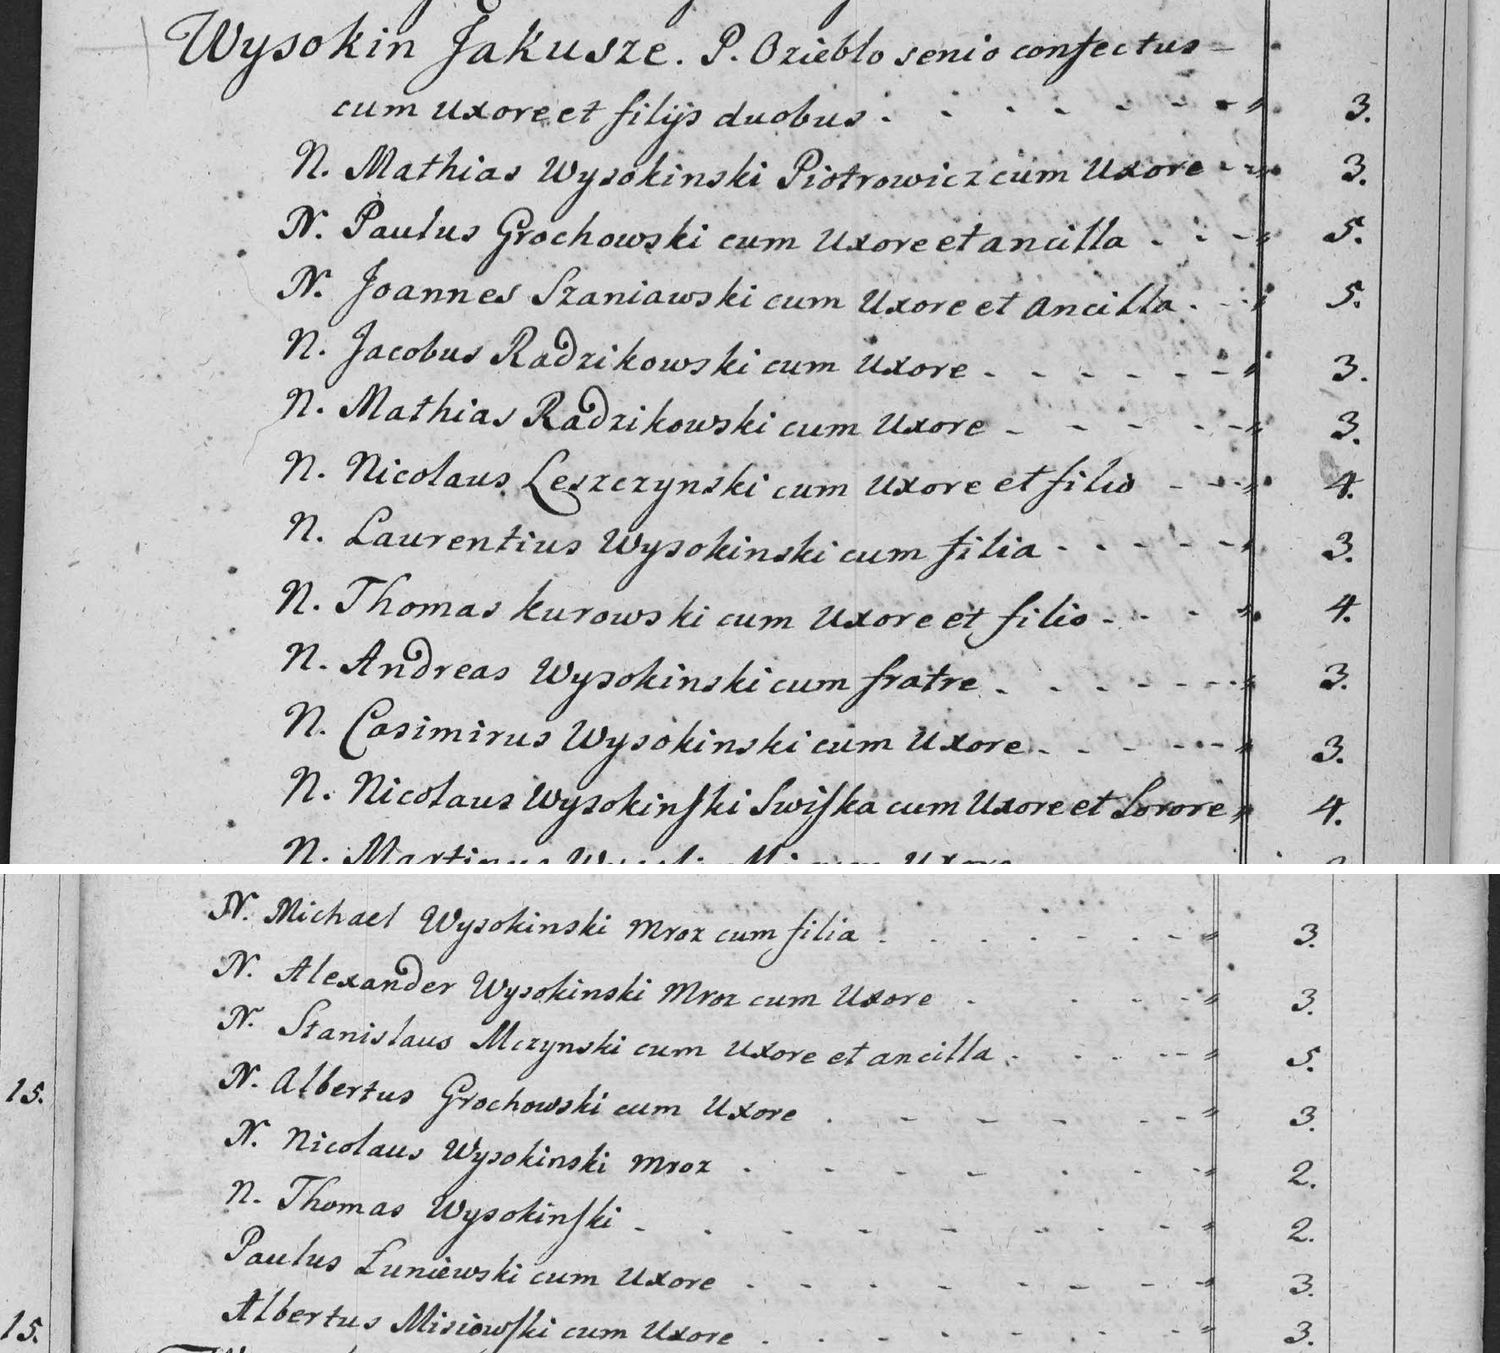 Wysokin Jakusze. P. Oziebło senio confectus
cum Uxore et filijs duobus . 3.
N. Mathias Wysokinski Piotrowicz cum Uxore 3.
N. Paulus Grochowski cum Uxore et ancilla 5.
N. Joannes Szaniawski cum Uxore et ancilla 5.
N. Jacobus Radzikowski cum Uxore 3.
N. Mathias Radzikowski cum Uxore 3.
N. Nicolaus Leszczynski cum Uxore et filio 4.
N. Laurentius Wysokinski cum filia 3.
N. Thomas Kurowski cum Uxore et filio 4.
N. Andreas Wysokinski cum fratre 3.
N. Casimirus Wysokinski cum Uxore 3.
N. Nicolaus Wysokinſki Swiſka cum Uxore et Sorore 4.
N. Martinus cum Uxore
N. Michael Wysokinski Mroz cum filia 3.
N. Alexander Wysokinski Mroz cum Uxore 3.
N. Stanislaus Mczynski cum Uxore et ancilla 5.
15.
N. Albertus Grochowski cum Uxore 3.
N. Nicolaus Wysokinski Mroz 2.
N. Thomas Wysokinſki 2.
Paulus Łuniewski cum Uxore 3.
15.
Albertus Misiowſki cum Uxore 3.